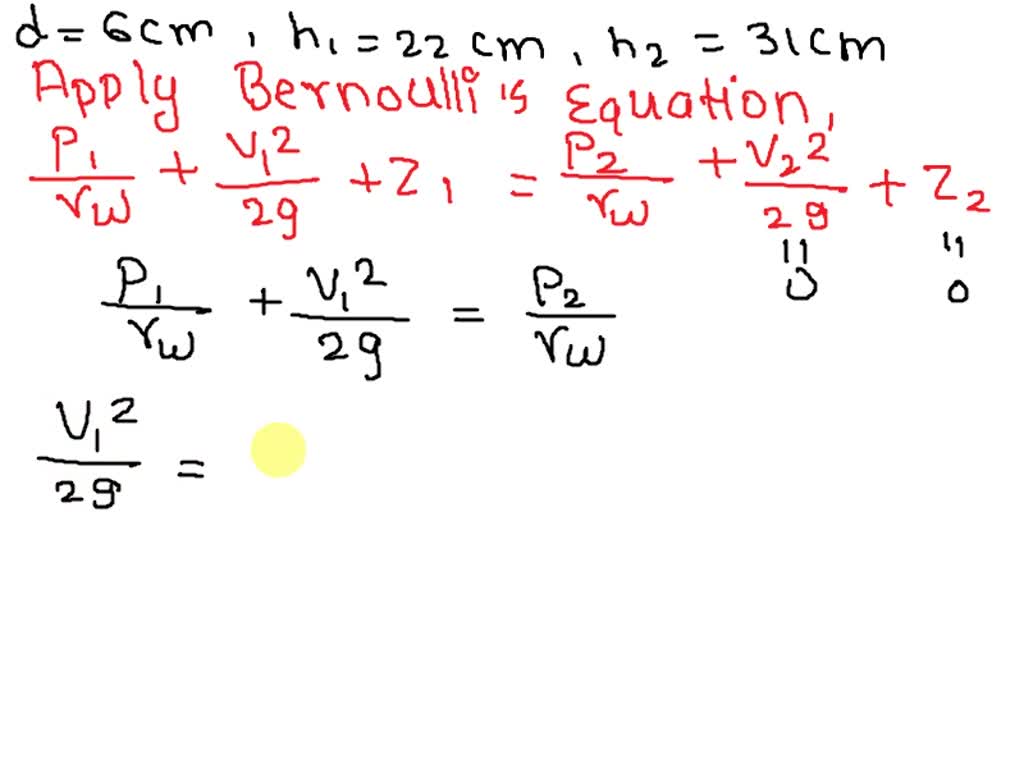 d = 6cm, h₁ = 22 cm, h₂ = 31cm
Apply Bernoulli's Equation,
P₁/γw + V₁²/2g + Z₁ = P₂/γw + V₂²/2g + Z₂
" "
0 0
P₁/γw + V₁²/2g = P₂/γw
V₁²/2g =